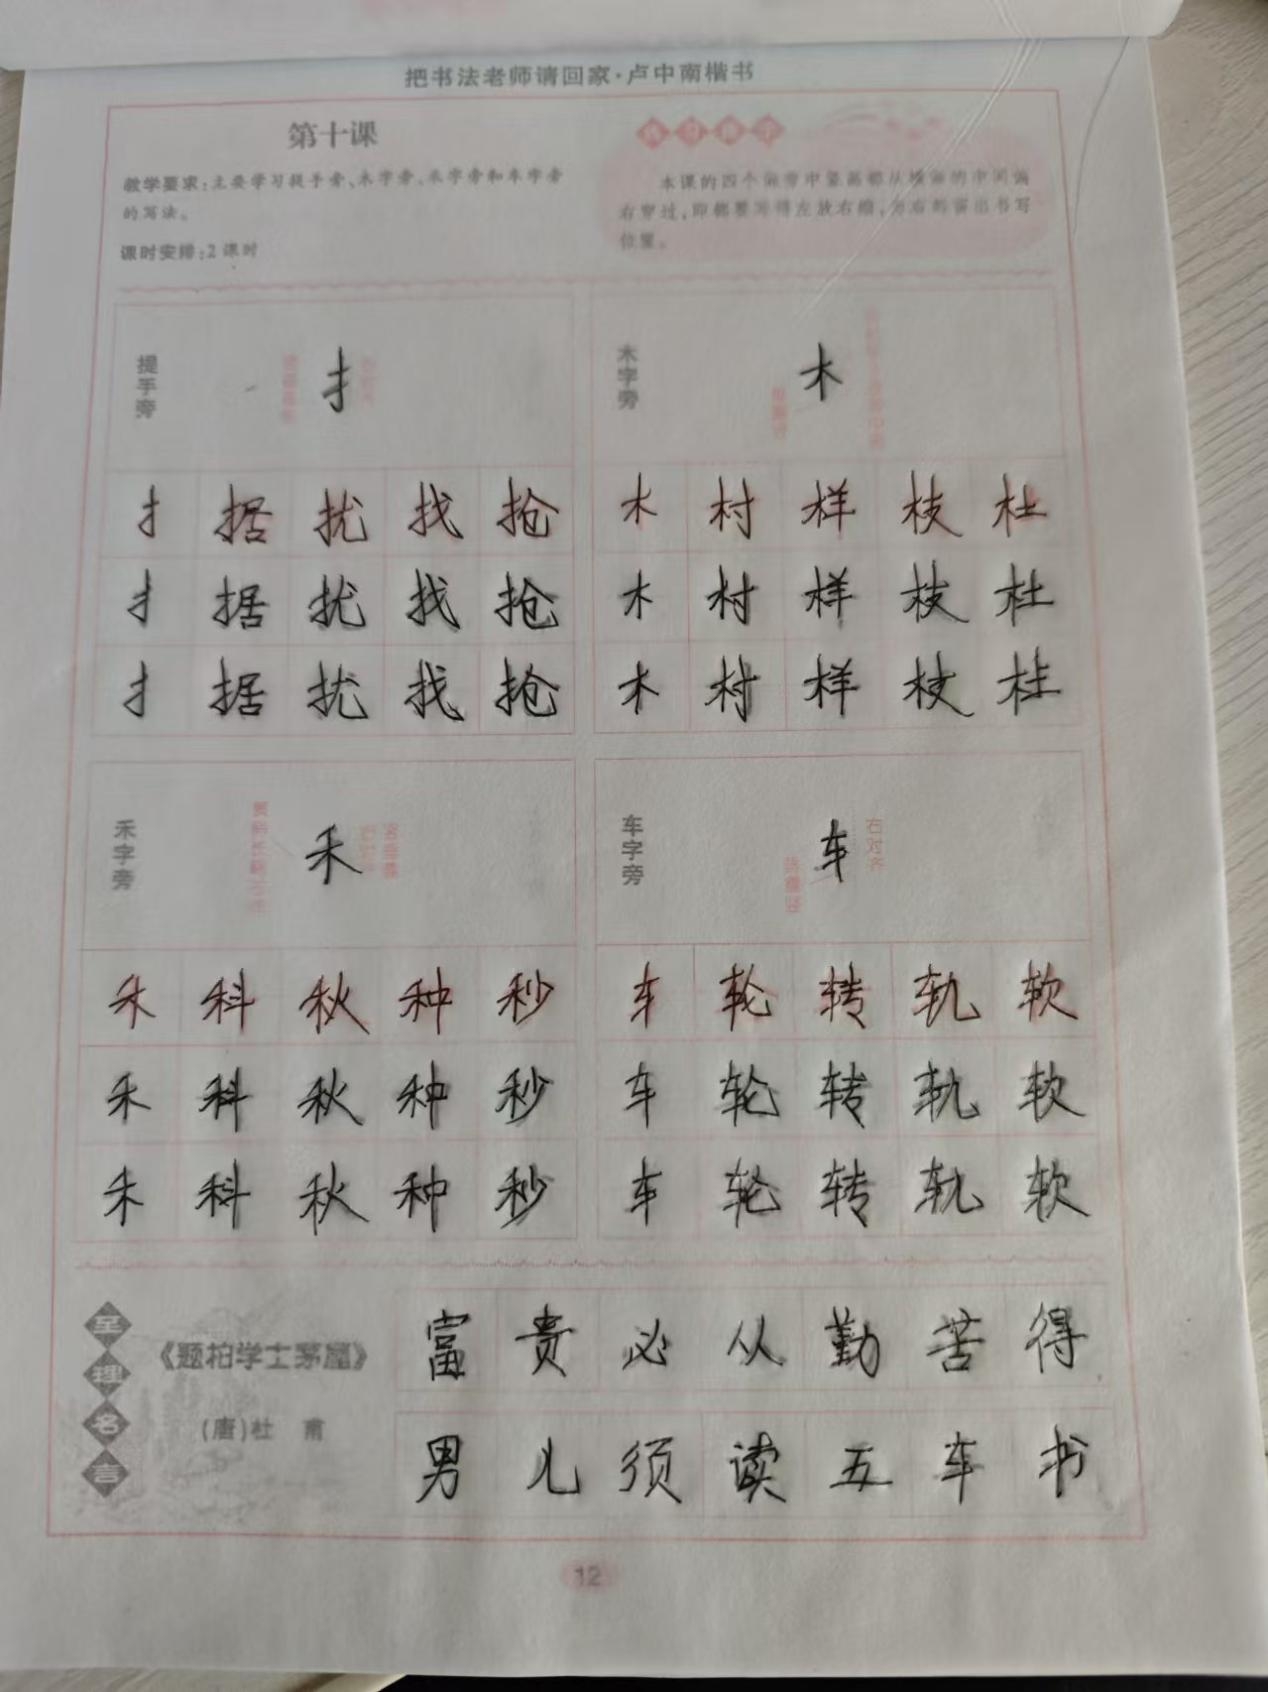 把书法老师请回家·卢中南楷书
第十课
教学要求：主要学习提手旁、木字旁、禾字旁和车字旁
的写法。
课时安排：2课时
本课的四个偏旁中竖画都从横画的中间偏
右穿过，即都要写得左放右缩，为右部留出书写
位置。
提手旁
扌
木字旁
木
扌 据 扰 找 抢
木 村 样 枝 杜
扌 据 扰 找 抢
木 村 样 枝 杜
扌 据 扰 找 抢
木 村 样 枝 杜
禾字旁
禾
车字旁
车
右对齐
禾 科 秋 种 秒
车 轮 转 轨 软
禾 科 秋 种 秒
车 轮 转 轨 软
禾 科 秋 种 秒
车 轮 转 轨 软
名言
《题柏学士茅屋》
(唐)杜 甫
富 贵 必 从 勤 苦 得
男 儿 须 读 五 车 书
12